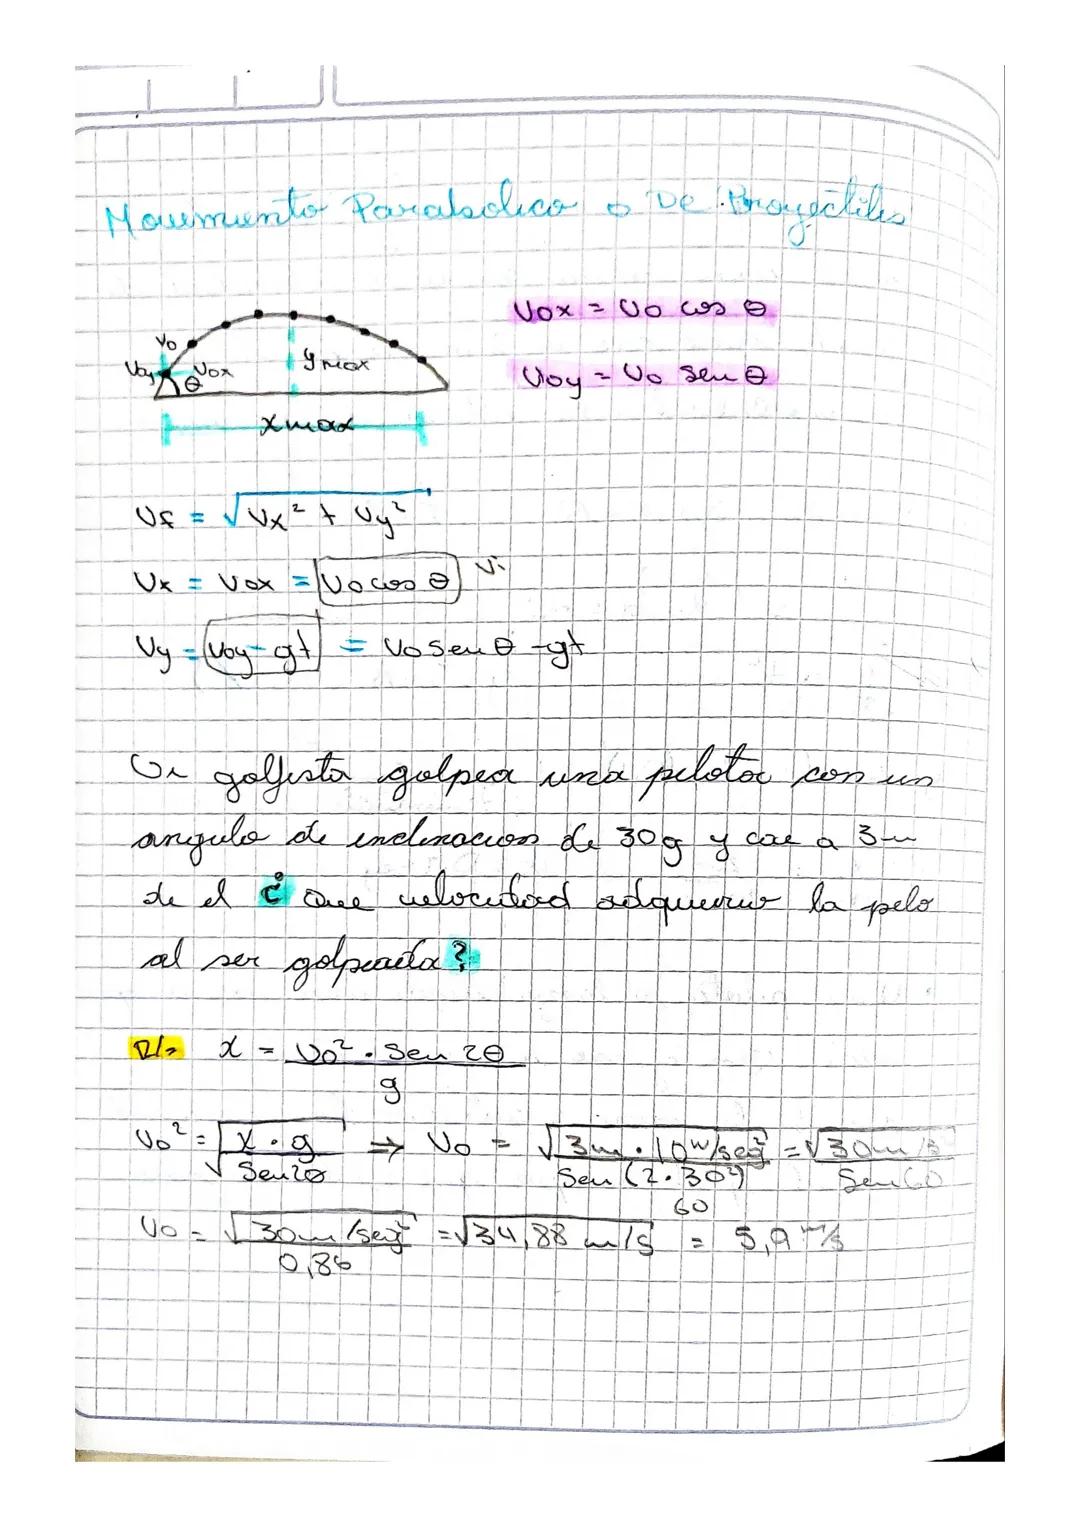 Movimiento Parabolico o De Proyectiles
Vox = Vo cos θ
Vo
Voy
Vox
θ
y max
Voy = Vo Sen θ
x max
Vf = √Vx² + Vy²
Vx = Vox = Vo cos θ Vi
Vy = Voy - gt = Vo Sen θ - gt
Un golfista golpea una pelota con un
angulo de inclinacion de 30g y cae a 3m
de el ¿ Que velocidad adquirir la pelo
al ser golpeada?
R/= x = Vo² · Sen 2θ
g
Vo² = √x · g ⇒ Vo = √3m · 10m/seg² = √30m/s
Sen2θ Sen (2 · 30°) Sen 60
60
Vo = √30m/seg² = √34,88 m/s = 5,9 m/s
0,86